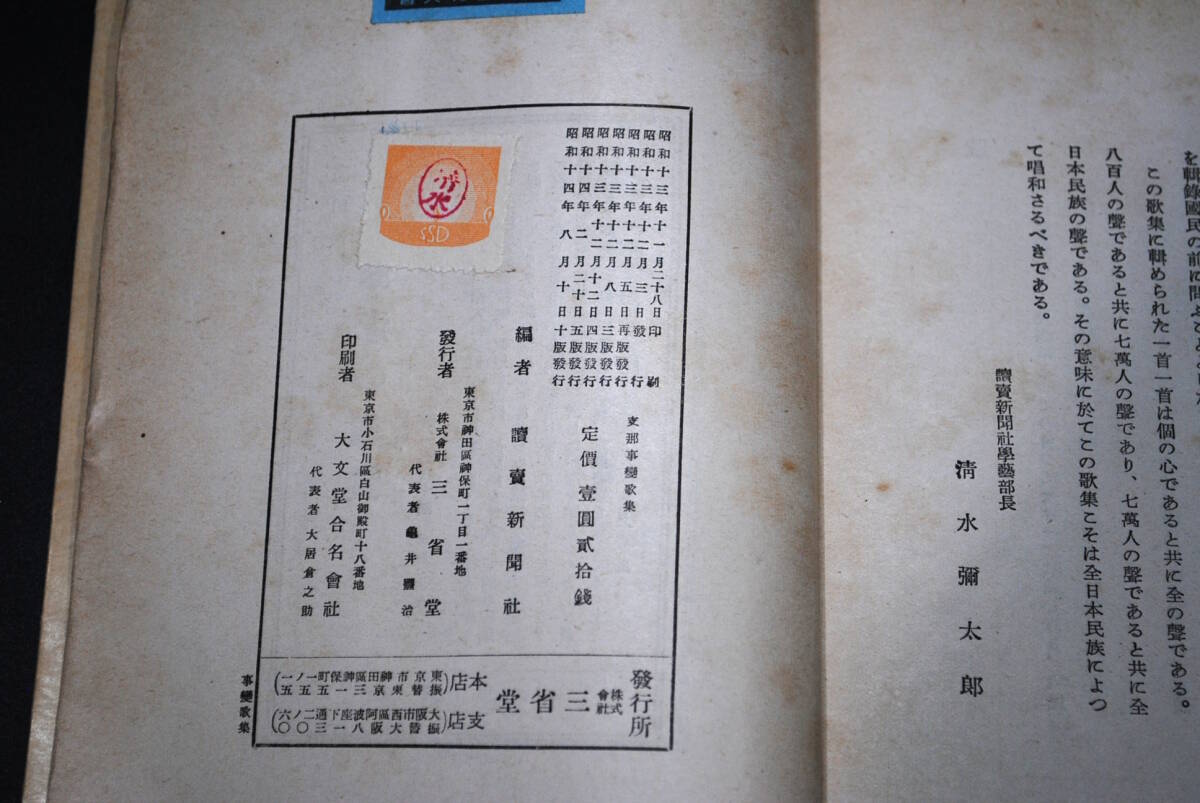 この歌集に輯められた一首一首は個の心であると共に全の聲である。
八百人の聲であると共に七萬人の聲であり、七萬人の聲であると共に全
日本民族の聲である。その意味に於てこの歌集こそは全日本民族によつ
て唱和さるべきである。
讀賣新聞社學藝部長
淸水彌太郎
昭和十三年十一月二十八日印刷
昭和十三年十二月三日發行
昭和十三年十二月五日再版發行
昭和十三年十二月八日三版發行
昭和十三年十二月十二日四版發行
昭和十四年二月二十日五版發行
昭和十四年八月十日十版發行
支那事變歌集
定價壹圓貳拾錢
編者 讀賣新聞社
東京市神田區神保町一丁目一番地
發行者 株式會社 三省堂
代表者 龜井
東京市小石川區白山御殿町十八番地
印刷者 大文堂合名會社
代表者 大居倉之助
淸水
SSD
發行所 株式會社 三省堂
本店(東京市神田區神保町一ノ一
振替東京三一五五)
支店(大阪市西區阿波座下通二ノ六
振替大阪八一三〇〇)
事變歌集